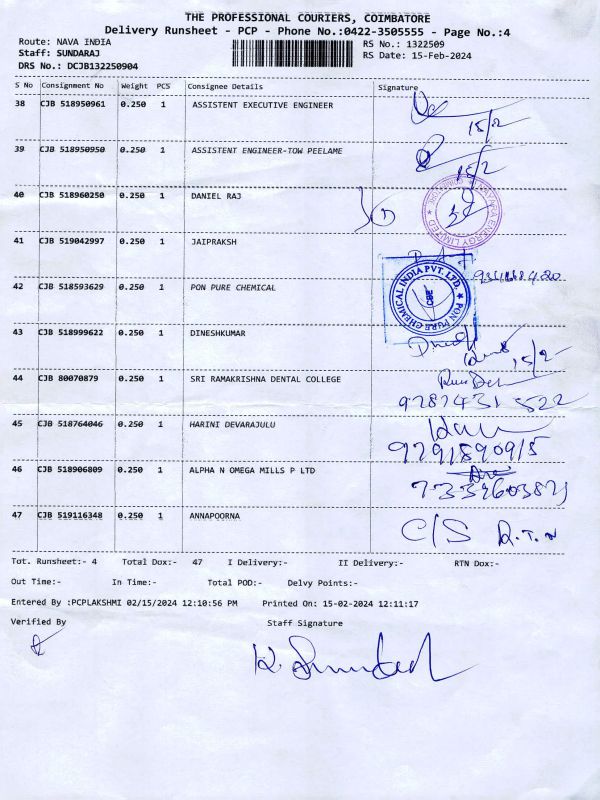 THE PROFESSIONAL COURIERS, COIMBATORE
Delivery Runsheet - PCP - Phone No.:0422-3505555 - Page No.:4
Route: NAVA INDIA
RS No.: 1322509
Staff: SUNDARAJ
RS Date: 15-Feb-2024
DRS No.: DCJB132250904
S No Consignment No Weight PCS Consignee Details Signature
38 CJB 518950961 0.250 1 ASSISTENT EXECUTIVE ENGINEER
15/2
39 CJB 518950950 0.250 1 ASSISTENT ENGINEER-TOW PEELAME
15/2
40 CJB 518960250 0.250 1 DANIEL RAJ
ENERGY LIMITED
41 CJB 519042997 0.250 1 JAIPRAKSH
42 CJB 518593629 0.250 1 PON PURE CHEMICAL
PON PURE CHEMICAL INDIA PVT. LTD.
CBE
43 CJB 518999622 0.250 1 DINESHKUMAR
15/2-
44 CJB 80070879 0.250 1 SRI RAMAKRISHNA DENTAL COLLEGE
9787431 522
45 CJB 518764046 0.250 1 HARINI DEVARAJULU
9791890915
46 CJB 518906809 0.250 1 ALPHA N OMEGA MILLS P LTD
47 CJB 519116348 0.250 1 ANNAPOORNA
C/S R.T.N
Tot. Runsheet:- 4 Total Dox:- 47 I Delivery:- II Delivery:- RTN Dox:-
Out Time:- In Time:- Total POD:- Delvy Points:-
Entered By :PCPLAKSHMI 02/15/2024 12:10:56 PM Printed On: 15-02-2024 12:11:17
Verified By Staff Signature